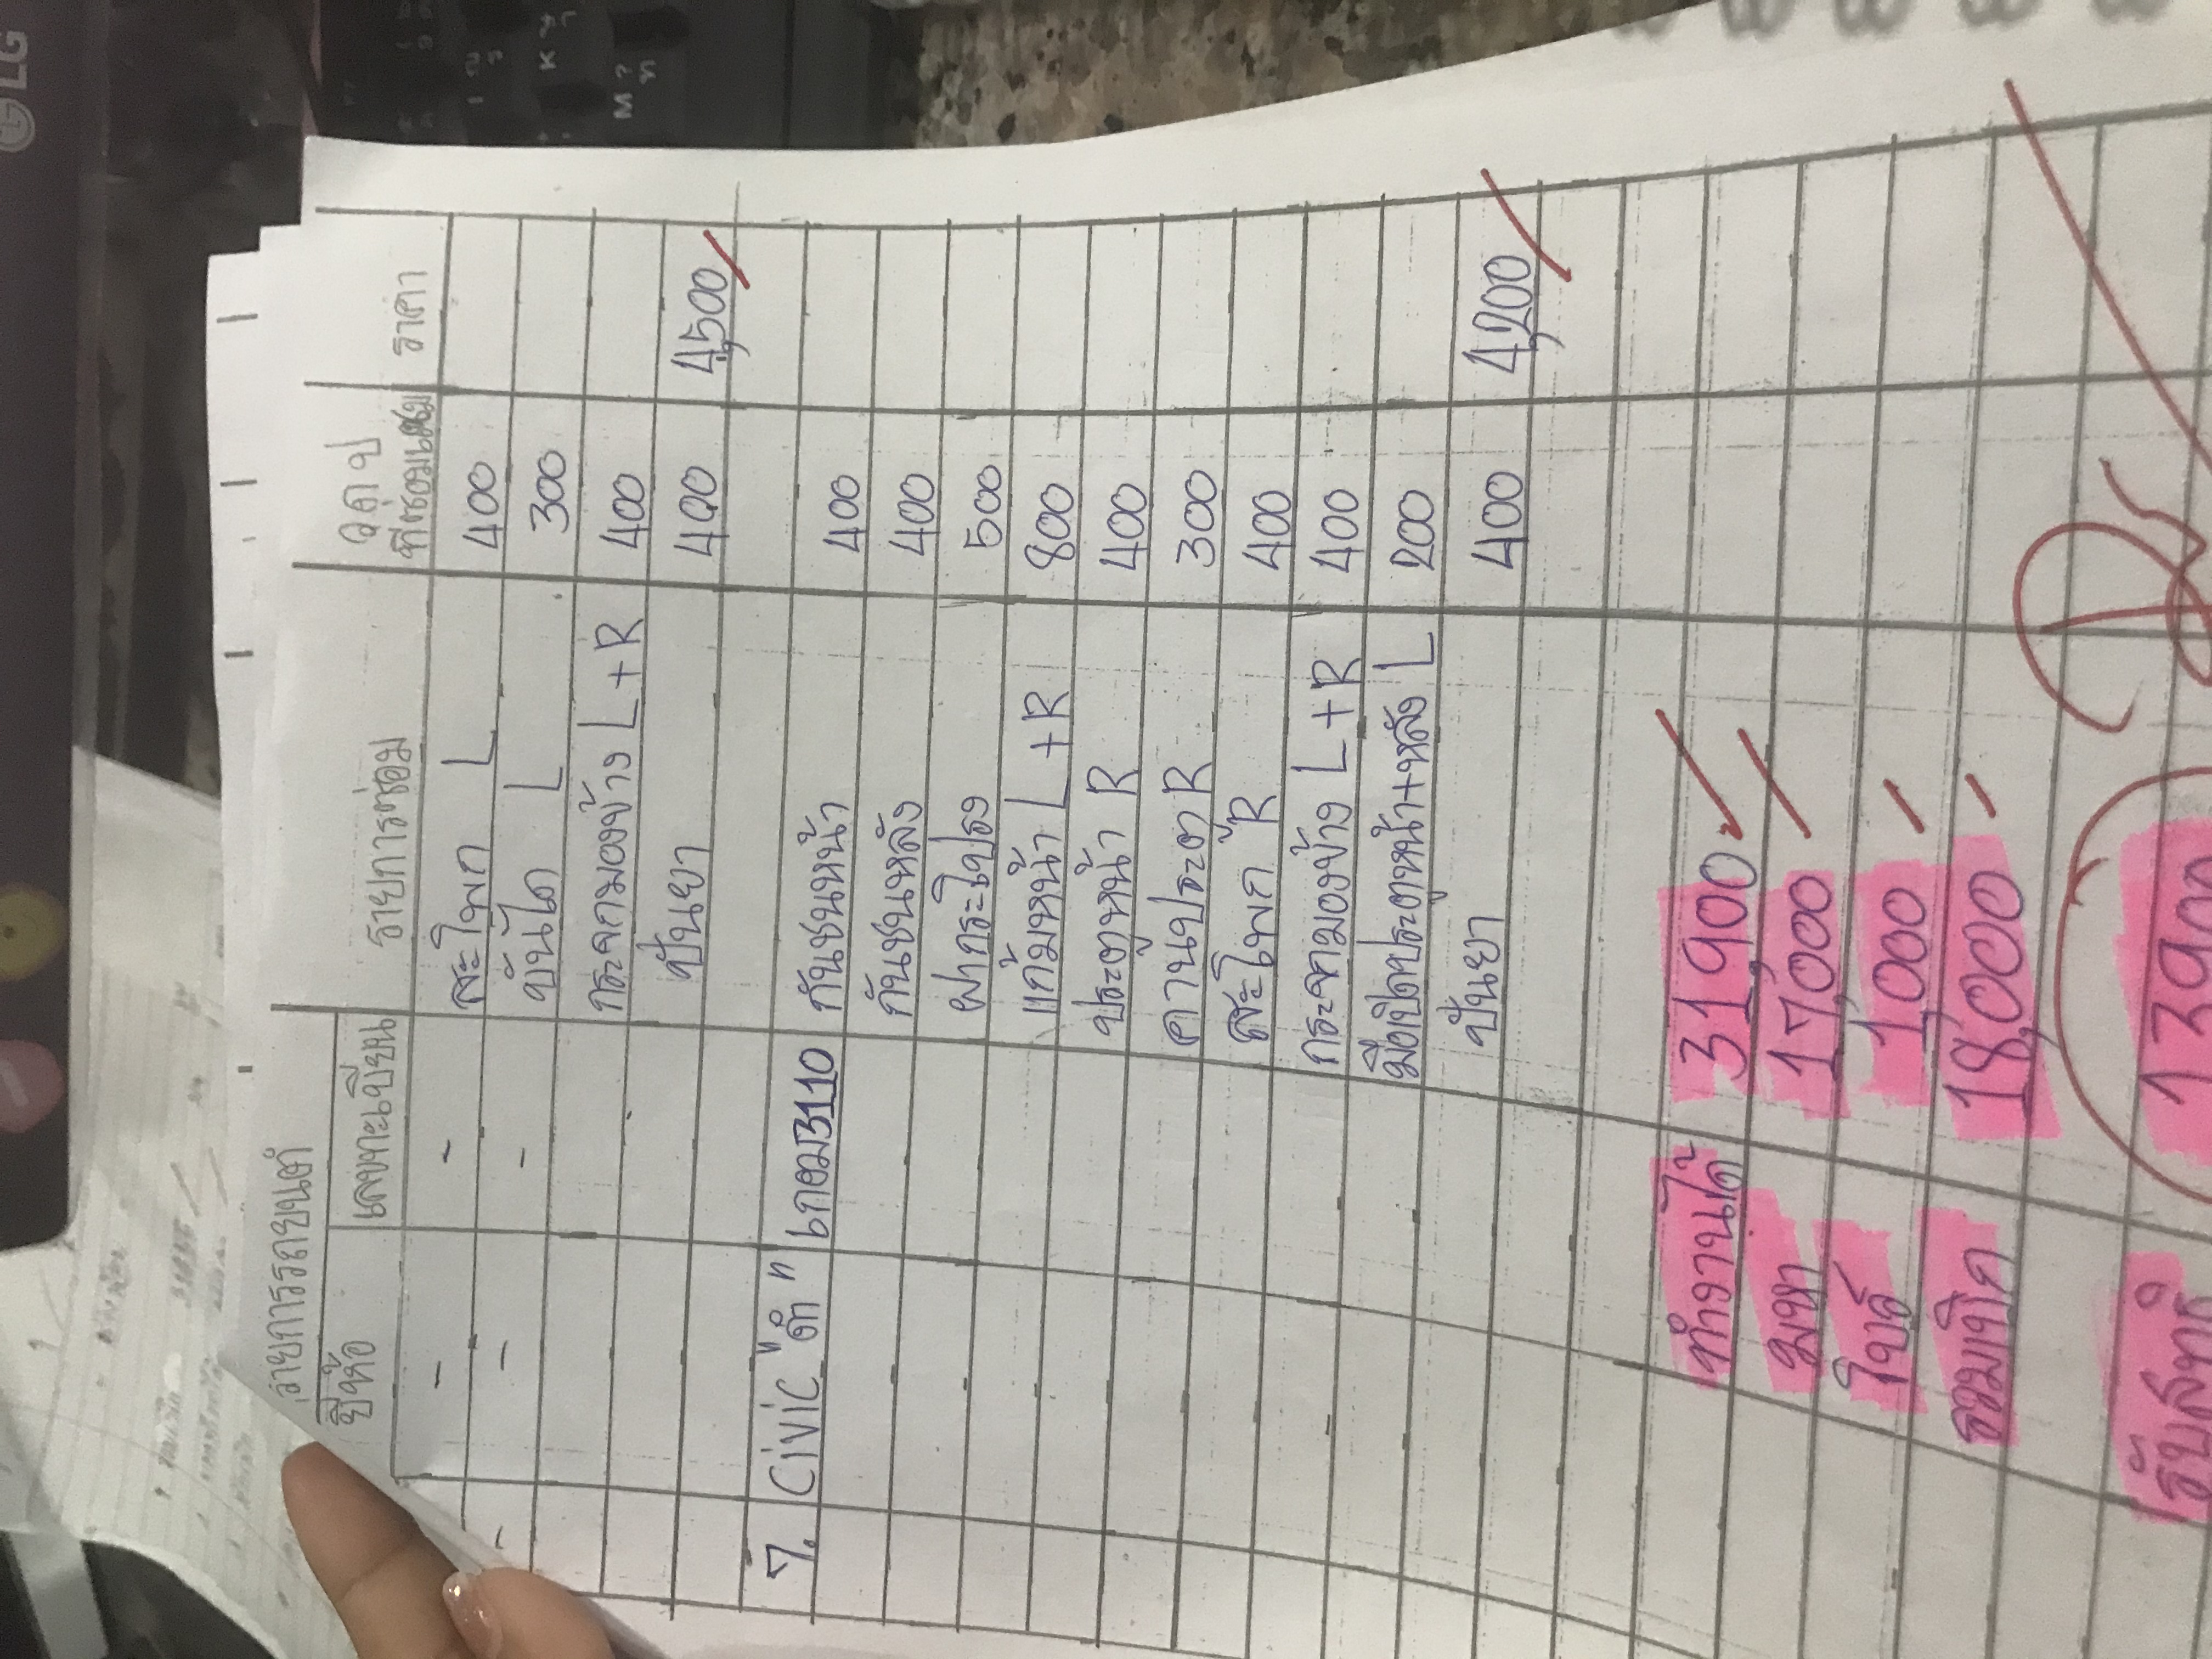 รายการรถยนต์ รายการซ่อม ว ด ป ราคา
ยี่ห้อ เลขทะเบียน ที่ซ่อมเสร็จ
- - สะโพก L 400
- - บันได L 300
กระจกมองข้าง L+R 400
ปั่นยา 400 4,500
7. Civic "ดำ" 6กอม3110 กันชนหน้า 400
กันชนหลัง 400
ฝากระโปรง 500
แก้มหน้า L+R 800
ประตูหน้า R 400
คานประตู R 300
สะโพก R 400
กระจกมองข้าง L+R 400
มือเปิดประตูหน้า+หลัง L 200
ปั่นยา 400 4,200
ทำงานได้ 31,900
17,000
1,000
รวมเบิก 18,000
รับสุทธิ 13900
LG